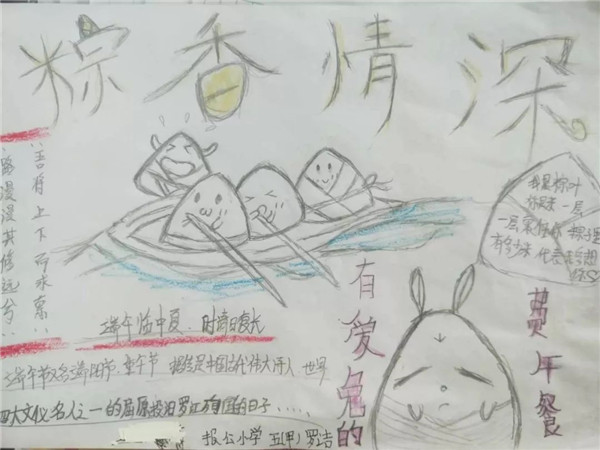 粽香情深
路漫漫其修远兮
吾将上下而求索
我是粽叶
你是米 一层
一层裹住你
有多少米 代表
端午临中夏，时清日复长
端午节又名端阳节、重午节 据传是中国古代伟大诗人 世界
四大文化名人之一的屈原投汨罗江殉国的日子……
报公小学 五(甲) 罗洁
有爱兔的